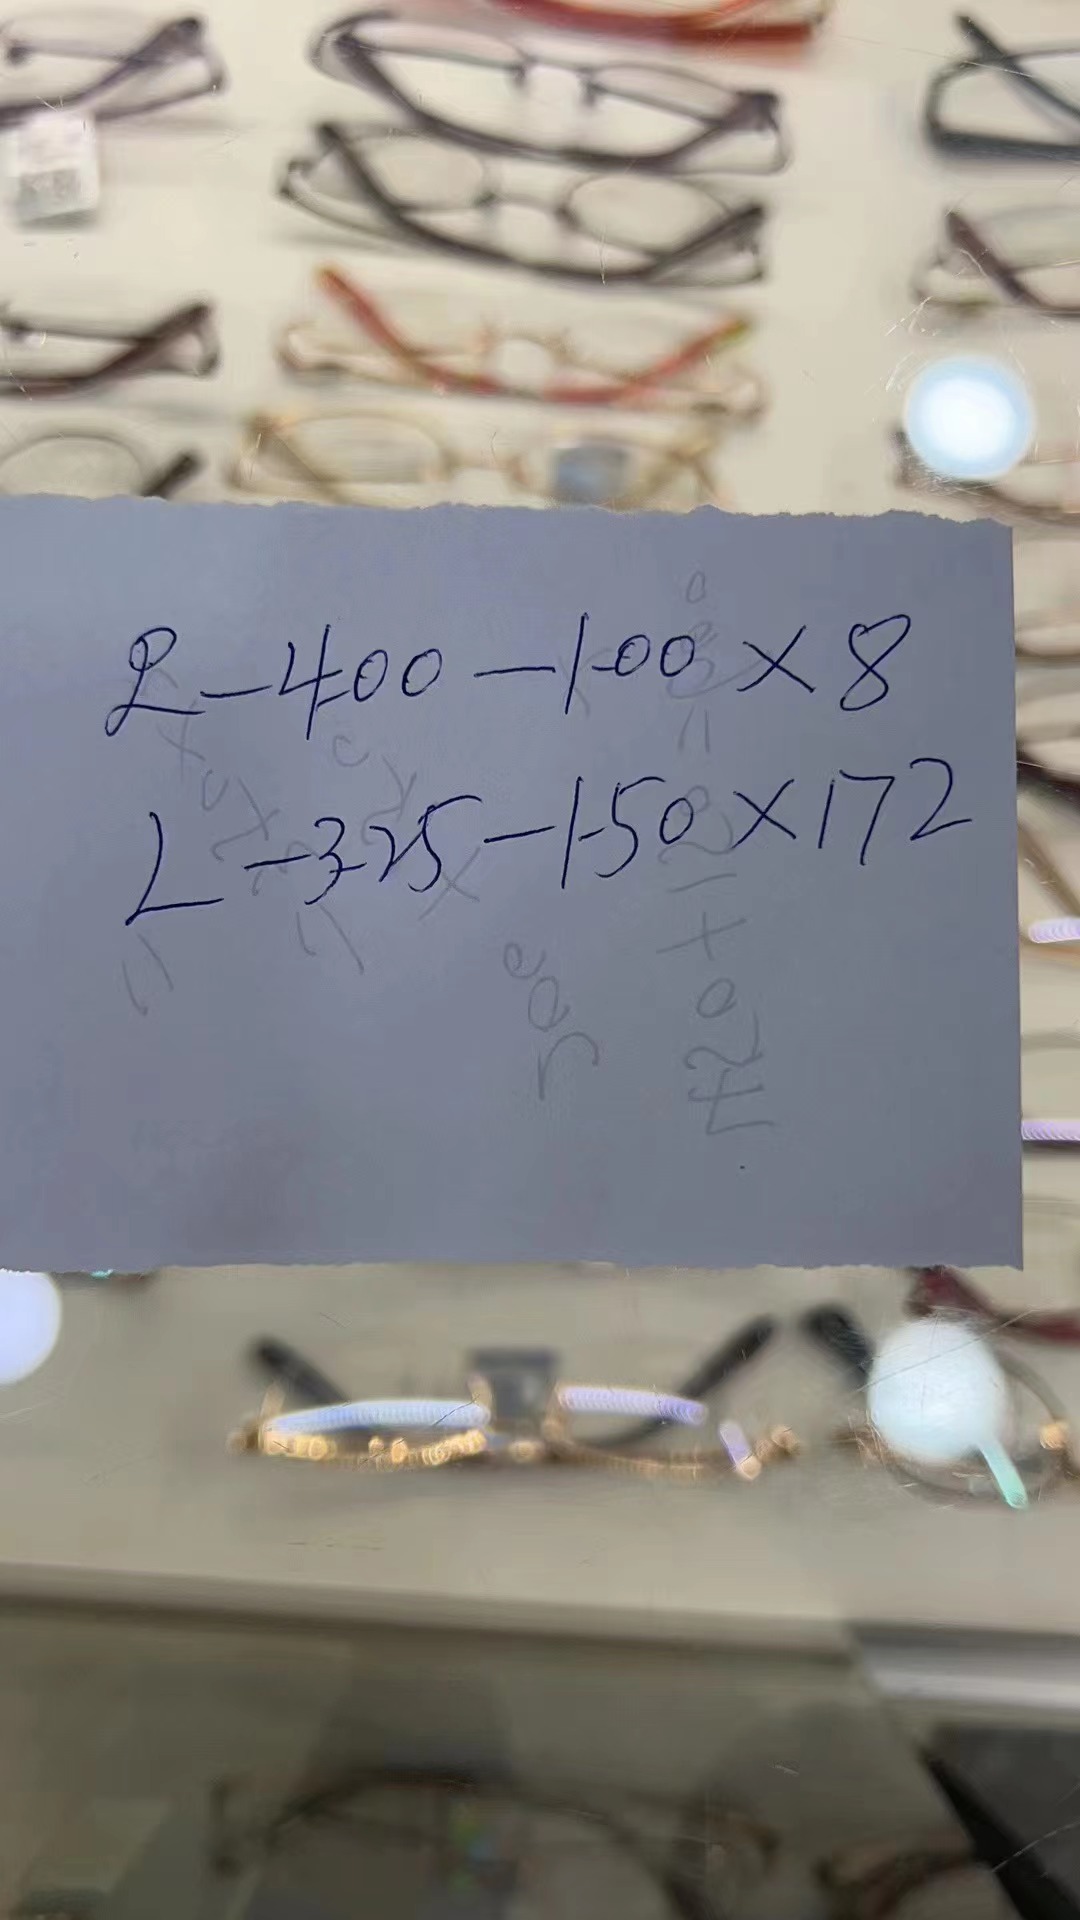 R -4.00 -1.00 × 8
L -3.25 -1.50 × 172